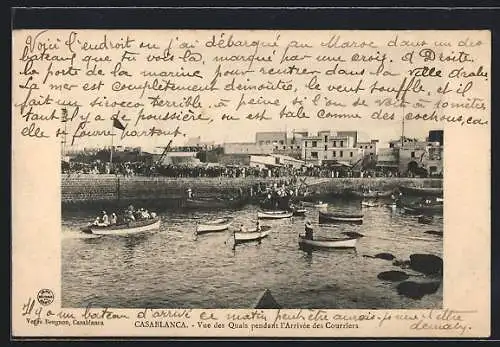 Voici l'endroit ou j'ai débarqué au Maroc dans un des
bateau que tu vois là, marqué par une croix. à Droite
la porte de la marine pour rentrer dans la ville arabe
La mer est complètement démontée, le vent souffle, et il
fait un sirocco terrible, à peine si l'on se voit à 10 mètres
tant il y a de poussière, ou est sal comme des cochons, car
elle se fourre partout.
Il y a un bateau d'arrivé ce matin peut être aurais-je une lettre
CASABLANCA. - Vue des Quais pendant l'Arrivée des Courriers
Bougnon, Casablanca